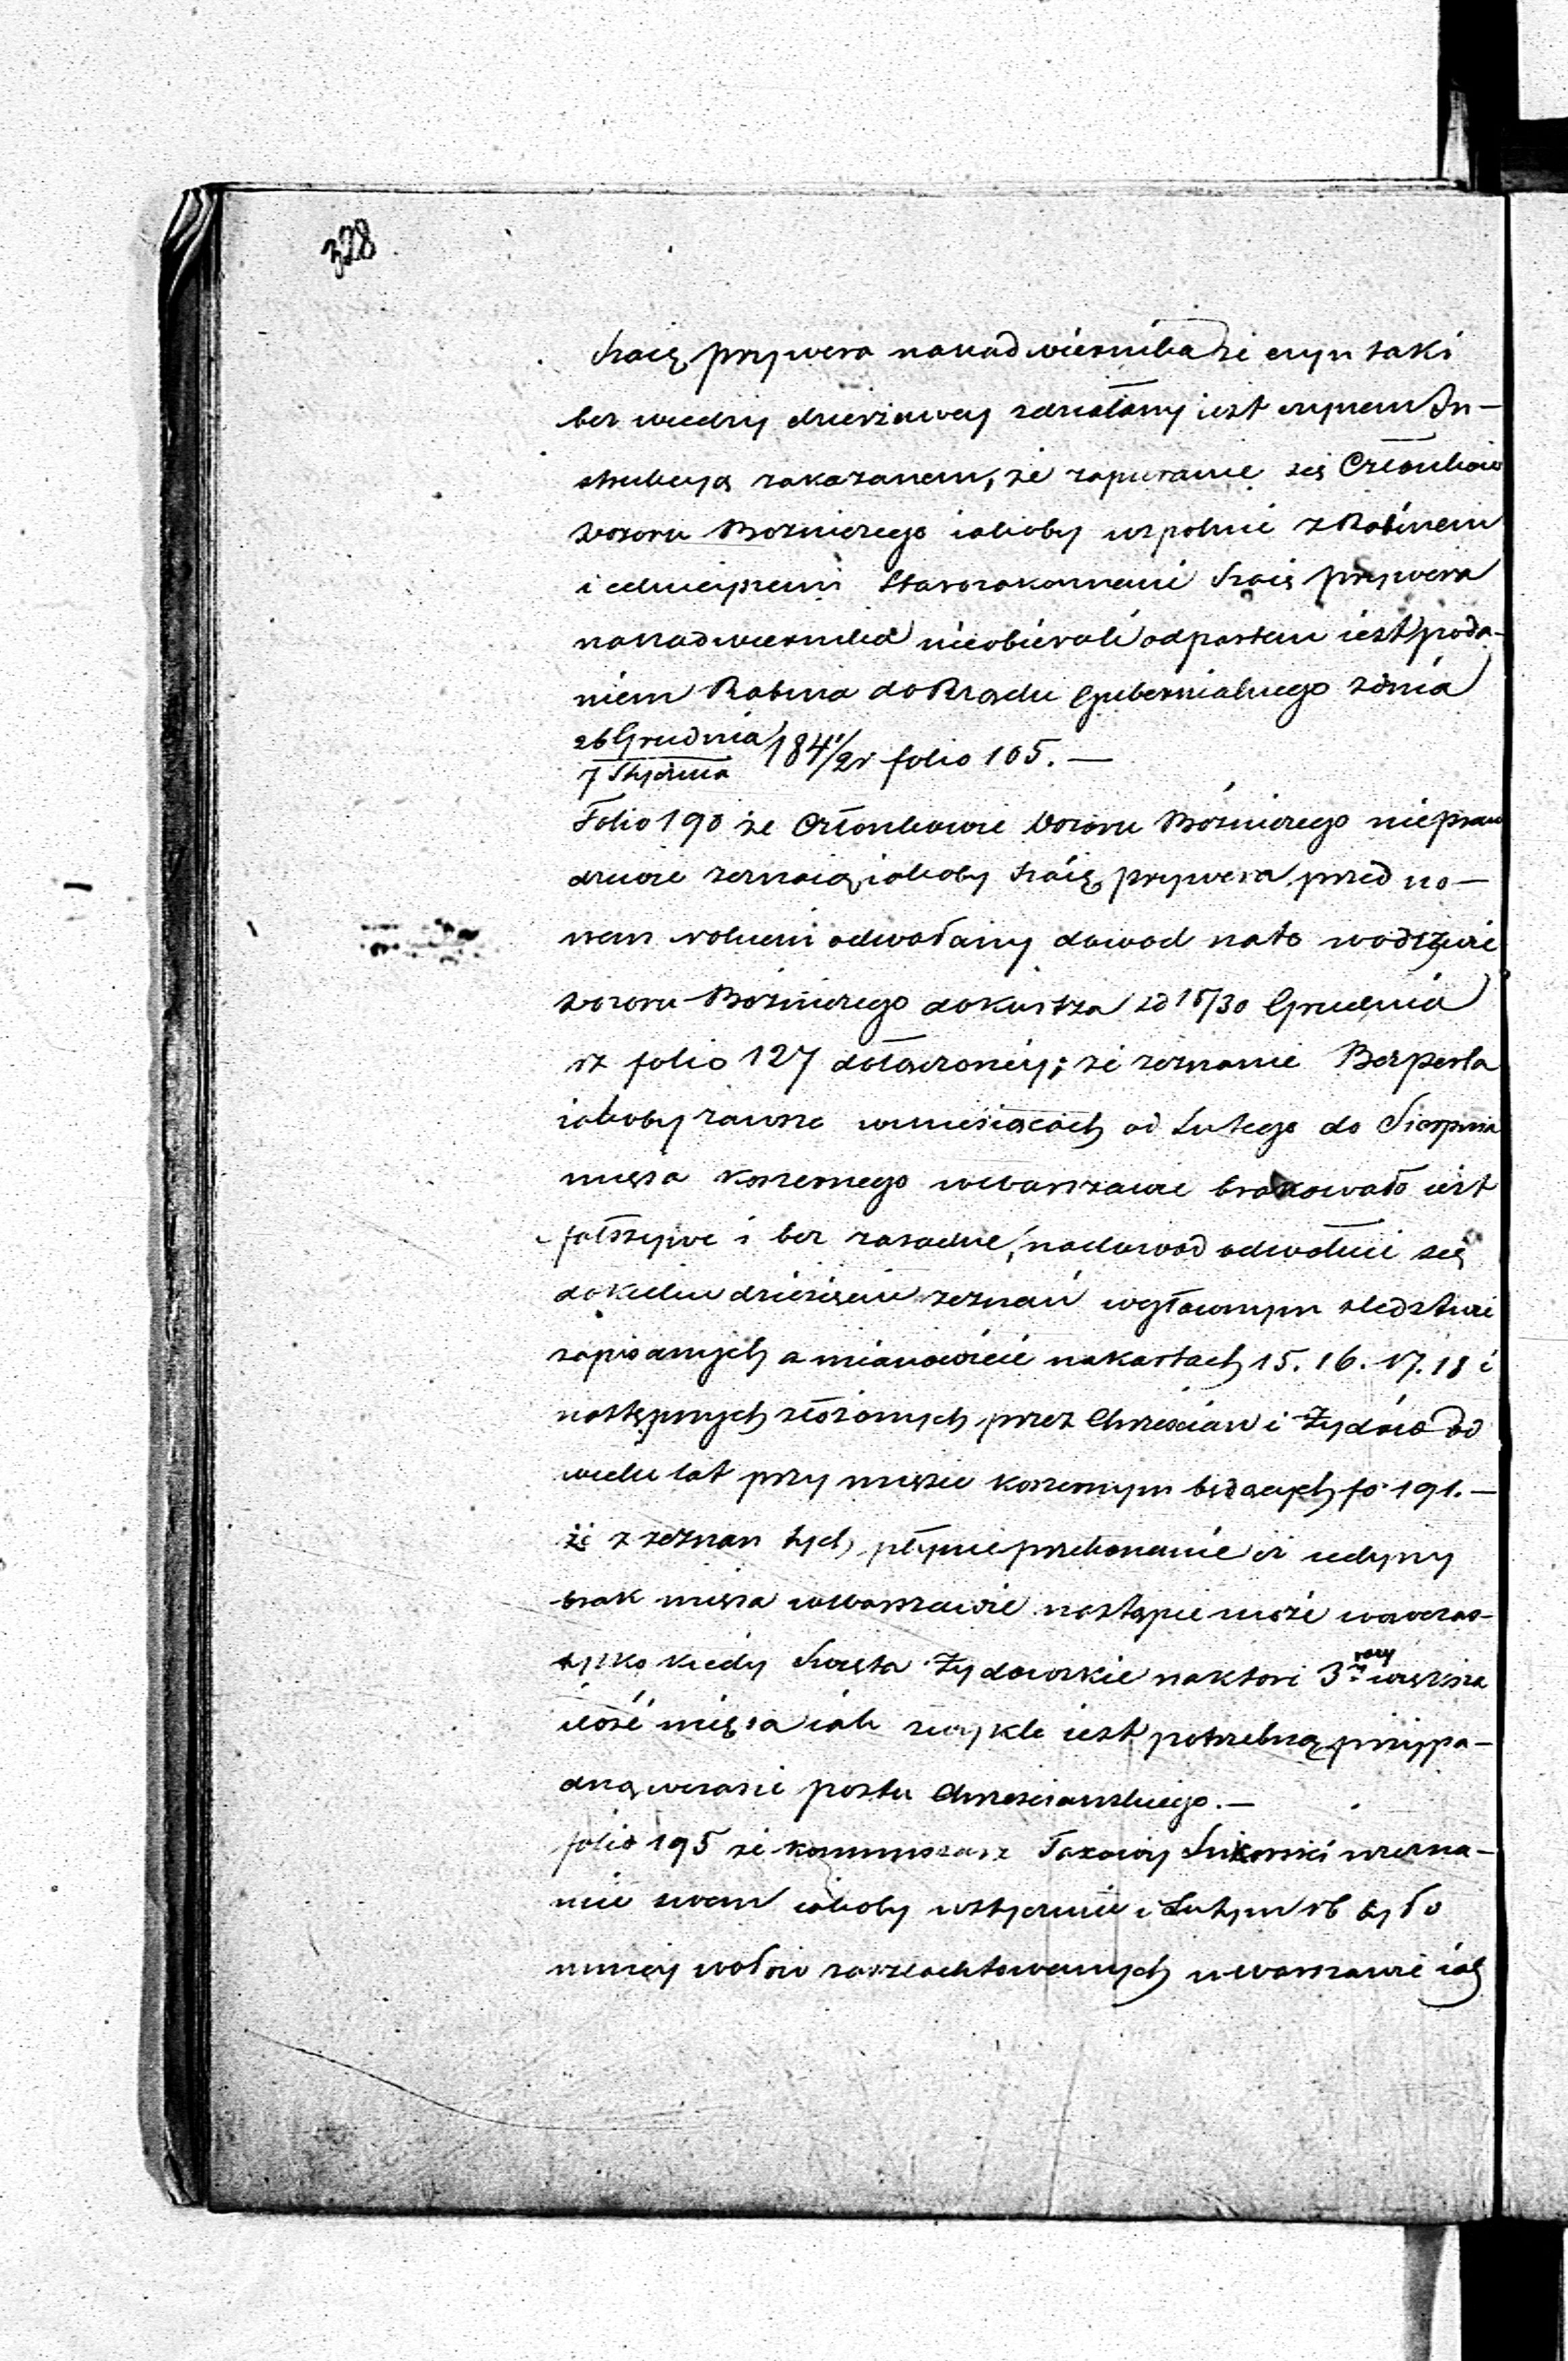 328
Szaię prywera nanadwiernika że czyn taki
bez wiedzy dzierzawcy zdziałany iest czynem In-
strukcyą zakazanem, że zapieranie się Członków
Dozoru Bozniczego iakoby wspolnie z Rabinem
i celnieyszemi Starozakonnemi Szaię prywera
nanadwiernika nieobierali odpartem iest poda-
niem Rabina do Rządu Gubernialnego z dnia
26 Grudnia/7 Stycznia 1841/2 r folio 105. —
Folio 190 że Członkowie Dozoru Bózniczego niepraw
dziwie zeznaią iakoby Szaię prywera przed no-
wem rokiem odwołany dowod na to w odezwie
Dozoru Bózniczego do Kunsztza z d 18/30 Grudnia
rz folio 127 dołączoney; że zeznanie Berperla
iakoby zawsze wmiesiącach od Lutego do Sierpnia
mięsa koszernego wWarszawie brakowało iest
fałszywe i bez zasadne, nadowod odwołuie się
dokilku dziesięciu zeznań wgłownym sledztwie
zapisanych a mianowicie nakartach 15. 16. 17. 18 i
następnych złożonych przez Chrześcian i Żydów od
wielu lat przy mięsie koszernym będących fo 191. —
że z zeznan tych płynie przekonanie iż iedyny
brak mięsa wWarszawie nastąpic może wowczas
tylko kiedy Swięta Żydowskie naktore 3 razy większa
ilość mięsa iak zwykle iest potrzebną przypa-
dną wczasie postu Chrzescianskiego. —
folio 195 że kommissarz Taxowy Sikorski wzezna-
nie swem iakoby wstyczniu i Lutym rb było
mniey wołow zaszlachtowanych wWarszawie iak